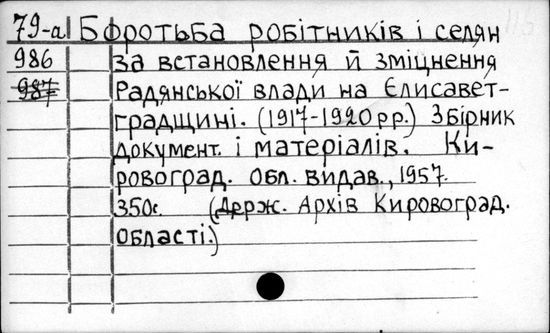 79-а Бфротьба робітників і селян
986 за встановлення й зміцнення
987 Радянської влади на Єлисавет-
градщині. (1917-1920 рр.) Збірник
документ. і матеріалів. Ки-
ровоград. обл. видав., 1957.
350с. (Держ. Архів Кировоград.
області.)